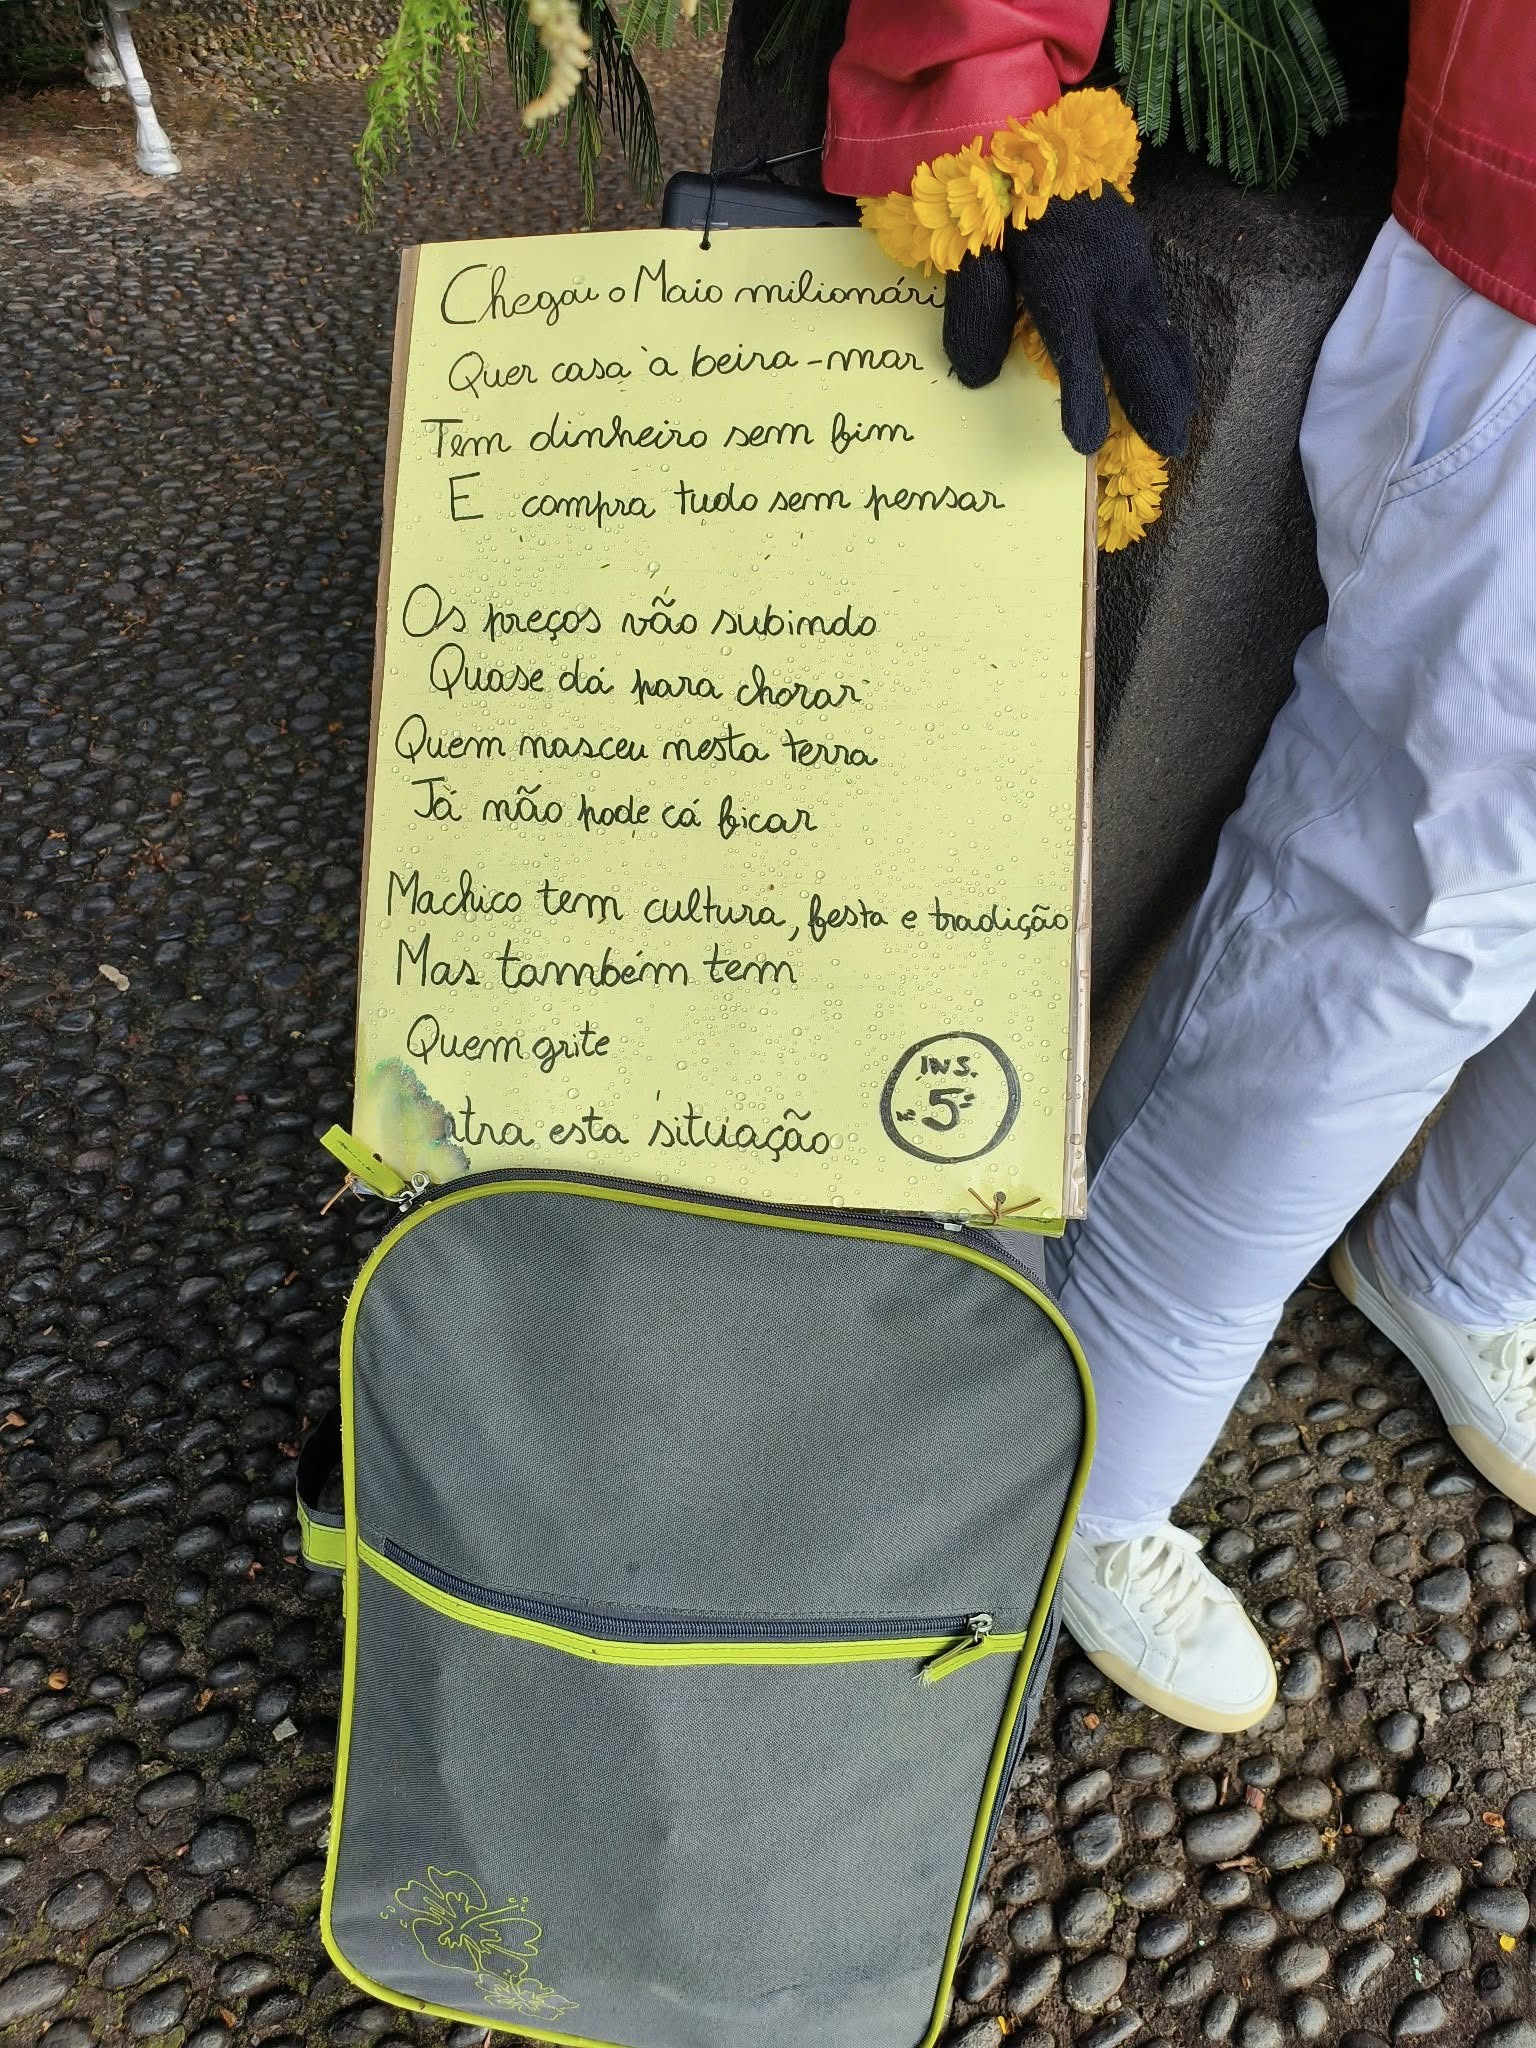 Chegou o Maio milionári
Quer casa à beira-mar
Tem dinheiro sem fim
E compra tudo sem pensar
Os preços vão subindo
Quase dá para chorar
Quem nasceu nesta terra
Já não pode cá ficar
Machico tem cultura, festa e tradição
Mas também tem
Quem grite
ntra esta situação
INS.
nº 5